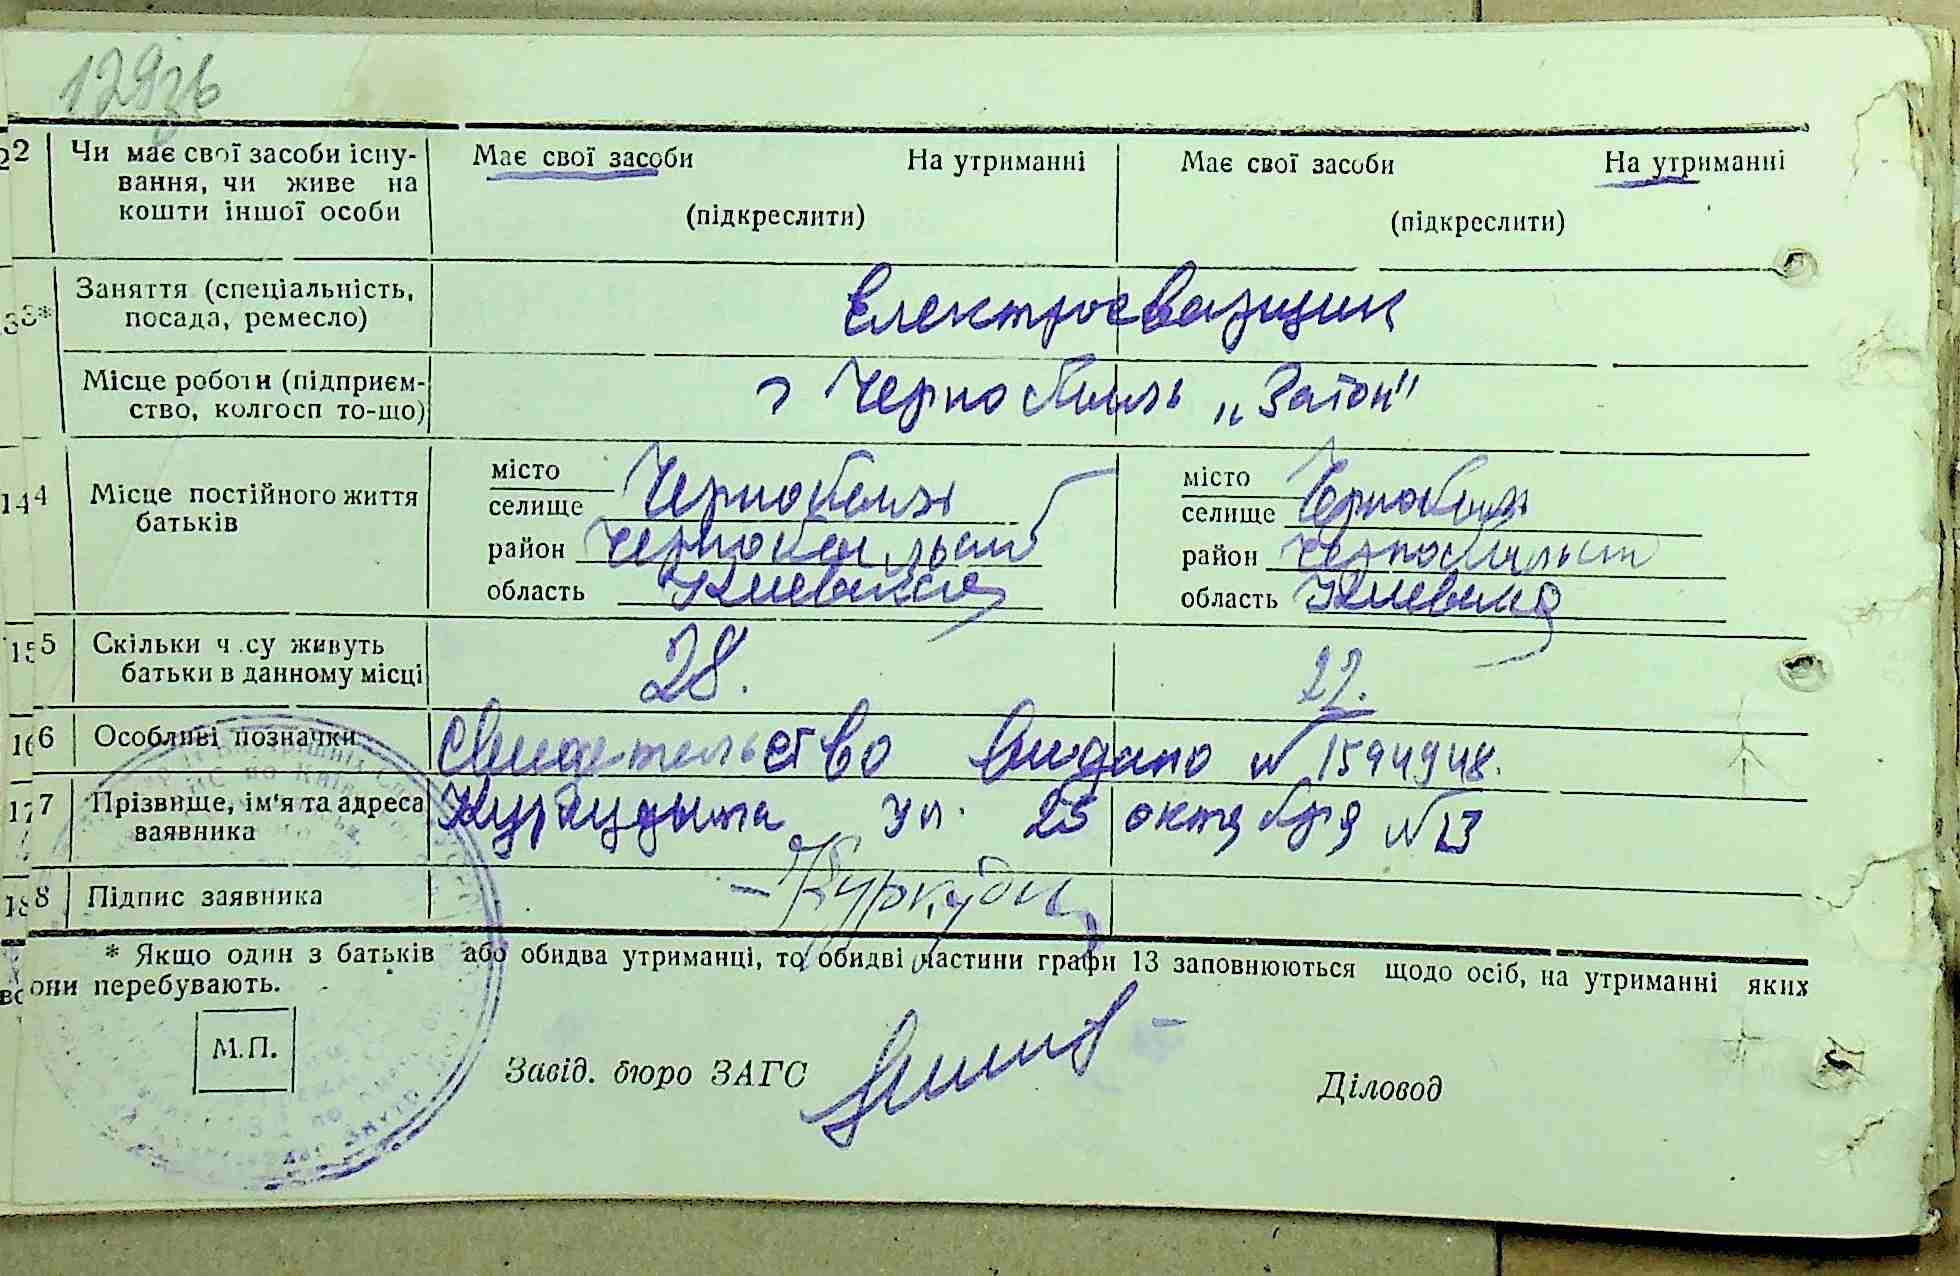 129зв
12 Чи має свої засоби існу-
вання, чи живе на
кошти іншої особи
Має свої засоби На утриманні
(підкреслити)
Має свої засоби На утриманні
(підкреслити)
13* Заняття (спеціальність,
посада, ремесло)
Електросварщик
Місце роботи (підприєм-
ство, колгосп то-що)
г Чернобыль „Затон"
14 Місце постійного життя
батьків
місто
селище Чернобыль
район
область Киевская
місто
селище Чернобыль
район
область
15 Скільки ч су живуть
батьки в данному місці
28. 22.
16 Особливі позначки
Свидетельство видано № 1594948.
17 Прізвище, ім'я та адреса
заявника
ул. 25 октября №13
18 Підпис заявника
* Якщо один з батьків або обидва утриманці, то обидві частини графи 13 заповнюються щодо осіб, на утриманні яких
вони перебувають.
М.П.
Завід. бюро ЗАГС
Діловод